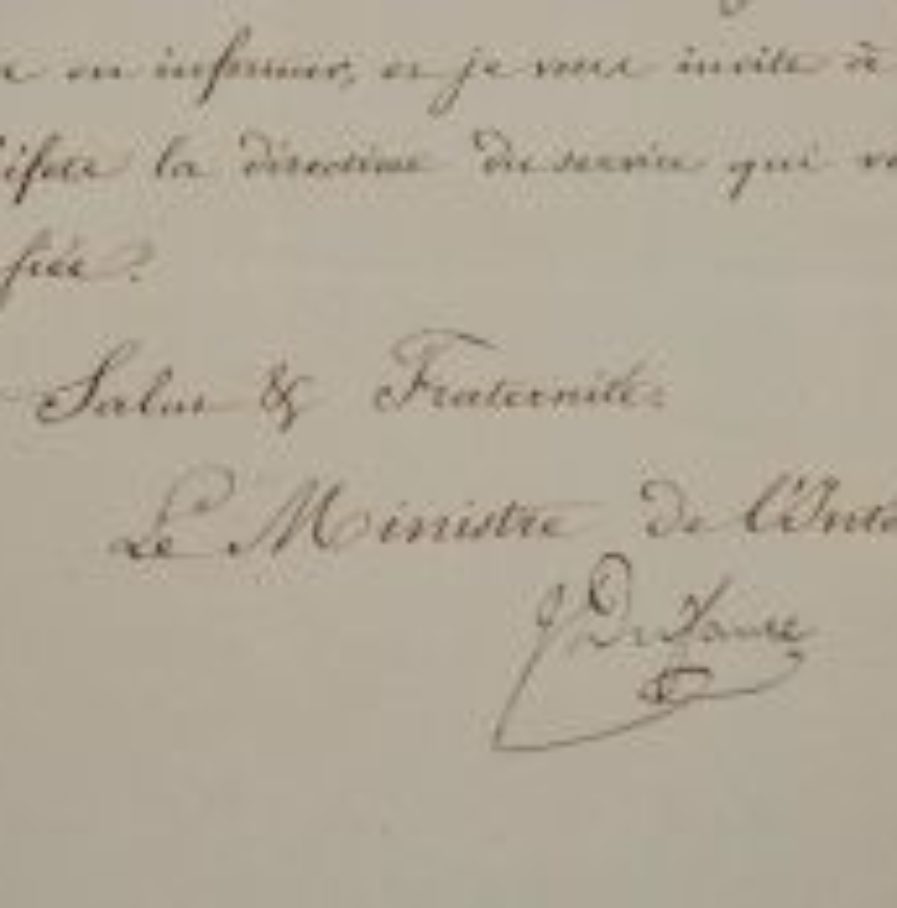 en informer, et je vous invite à
la direction du service qui
fiée.
Salut & Fraternité.
Le Ministre de l'Inté
Dufaure